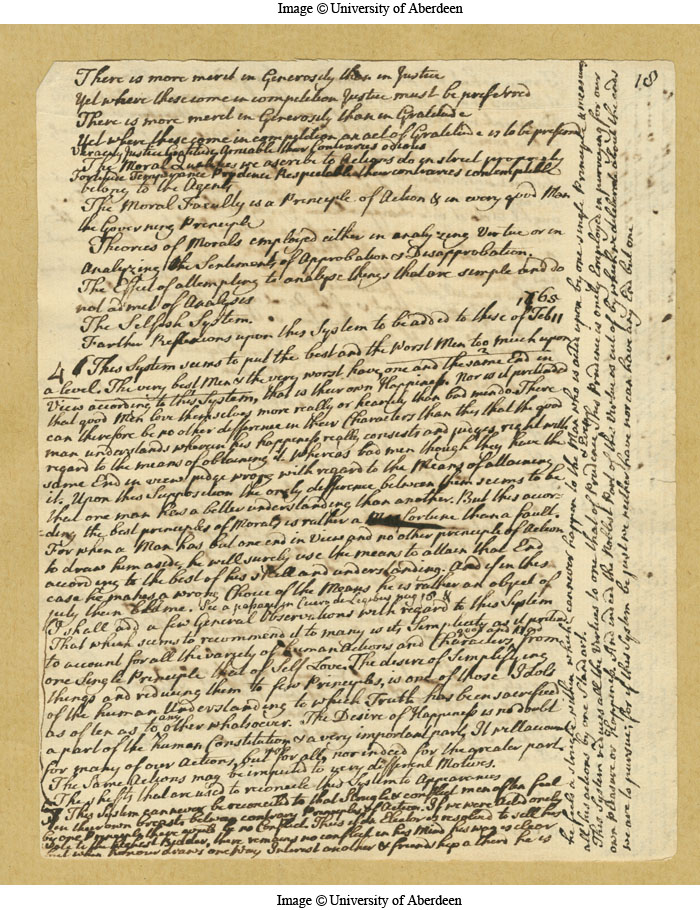 Image © University of Aberdeen
18
There is more merit in Generosity than in Justice
Yet where these come in competition Justice must be preferred
There is more merit in Generosity than in Gratitude
Yet where these come in competition an act of Gratitude is to be
Veracity Justice Gratitude Amiable their Contraries odious
The Moral Qualities we ascribe to Actions do in strict propriety
Fortitude Temperance Prudence Respectable their contraries contemptible
belong to the Agent
The Moral Faculty is a Principle of Action & in every good Man
the Governing Principle
Theories of Morals employed either in analyzing Virtue or in
Analyzing the Sentiments of Approbation & Disapprobation.
The Effect of attempting to analyse things that are simple and do
not admit of Analysis
The Selfish System.
1765
Farther Reflexions upon this System to be added to these of Feb 11
4 This System seems to put the best and the Worst Men too much upon
a level. The very best Men & the very worst have one and the same End in
View according to this System, that is their own Happiness. Nor is it pretended
that good Men love themselves more really or heartily than bad men do. There
can therefore be no other difference in their Characters than this that the good
man understands wherein his happiness really consists and judges right with
regard to the means of obtaining it whereas bad men though they have the
same End in view judge wrong with regard to the Means of attaining
it. Upon this Supposition the only difference between them seems to be
that one man has a better understanding than another. But this accor-
ding the best principles of Morals is rather a Misfortune than a fault.
For when a Man has but one end in View and no other principle of Action
to draw him aside, he will surely use the means to attain that End
according to the best of his skill and understanding. And if in this
case he makes a wrong Choice of the Means he is rather an object of
pity then blame. See a
I shall add a few General Observations with regard to this System
That which seems to recommend it to many is its Simplicity as it pretends
to account for all the variety of human Actions and Characters good and bad from
one Single Principle that of Self Love. The desire of Simplifying
things and reducing them to few Principles, is one of those Idols
of the human Understanding to which Truth has been sacrificed
as often as to any other whatsoever. The Desire of Happiness is no doubt
a part of the human Constitution & a very important part. It will account
for many of our Actions, but not for all, nor indeed for the greater part.
The Same Actions may be imputed to very different Motives.
The shifts that are used to reconcile this System to Appearances
This System can never be reconciled to that Struggle & conflict men often feel
in their own breasts between contrary Principles of Action. If we were Acted only
by one Principle there would be no Conflict. Thus if an Elector is resolved to sell his
Vote to the highest Bidder, there remains no conflict in his Mind his way is clear
but when honour draws one way Interest another & friendship a third he is
he feels a struggle within which can never happen to the Man who is acted upon by one single Principle & measures
all his actions by one Standart.
This System reduces all the Virtues to one that of Prudence & even this Prudence is only Employed in purveying for our
own pleasure or Happiness. And indeed the Noblest Part of the Virtue is cut of by which we deliberate about the ends
we are to pursue; for if this System be just we neither have nor can have any End but one
Image © University of Aberdeen